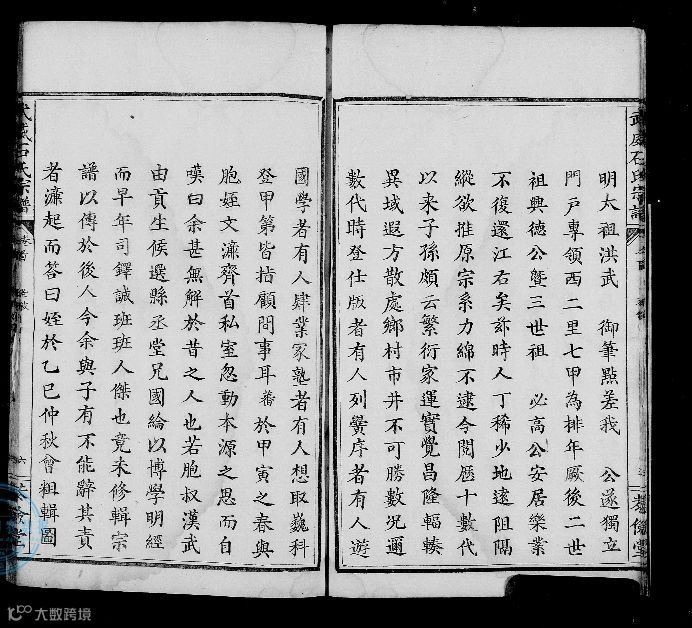 武威石氏宗譜
明太祖洪武 御筆點差我 公遂獨立
門戶專領西二里七甲為排年厥後二世
祖興德公曁三世祖 必高公安居樂業
不復還江右矣茲時人丁稀少地遠阻隔
縱欲推原宗系力綿不逮今閱歷十數代
以來子孫頗云繁衍家運寔覺昌隆輻輳
異域遐方散處鄉村市井不可勝數況邇
數代時登仕版者有人列黌序者有人遊
國學者有人肄業家塾者有人想取巍科
登甲第皆指顧間事耳番於甲寅之春與
胞姪文濂齊首私室忽動本源之思而自
嘆曰余甚無解於昔之人也若胞叔漢武
由貢生候選縣丞堂兄國綸以博學明經
而早年司鐸誠班班人傑也竟未修輯宗
譜以傳於後人今余與子有不能辭其責
者濂起而答曰姪於乙巳仲秋會輯圖
武威石氏宗譜
卷首
六
大数跨境